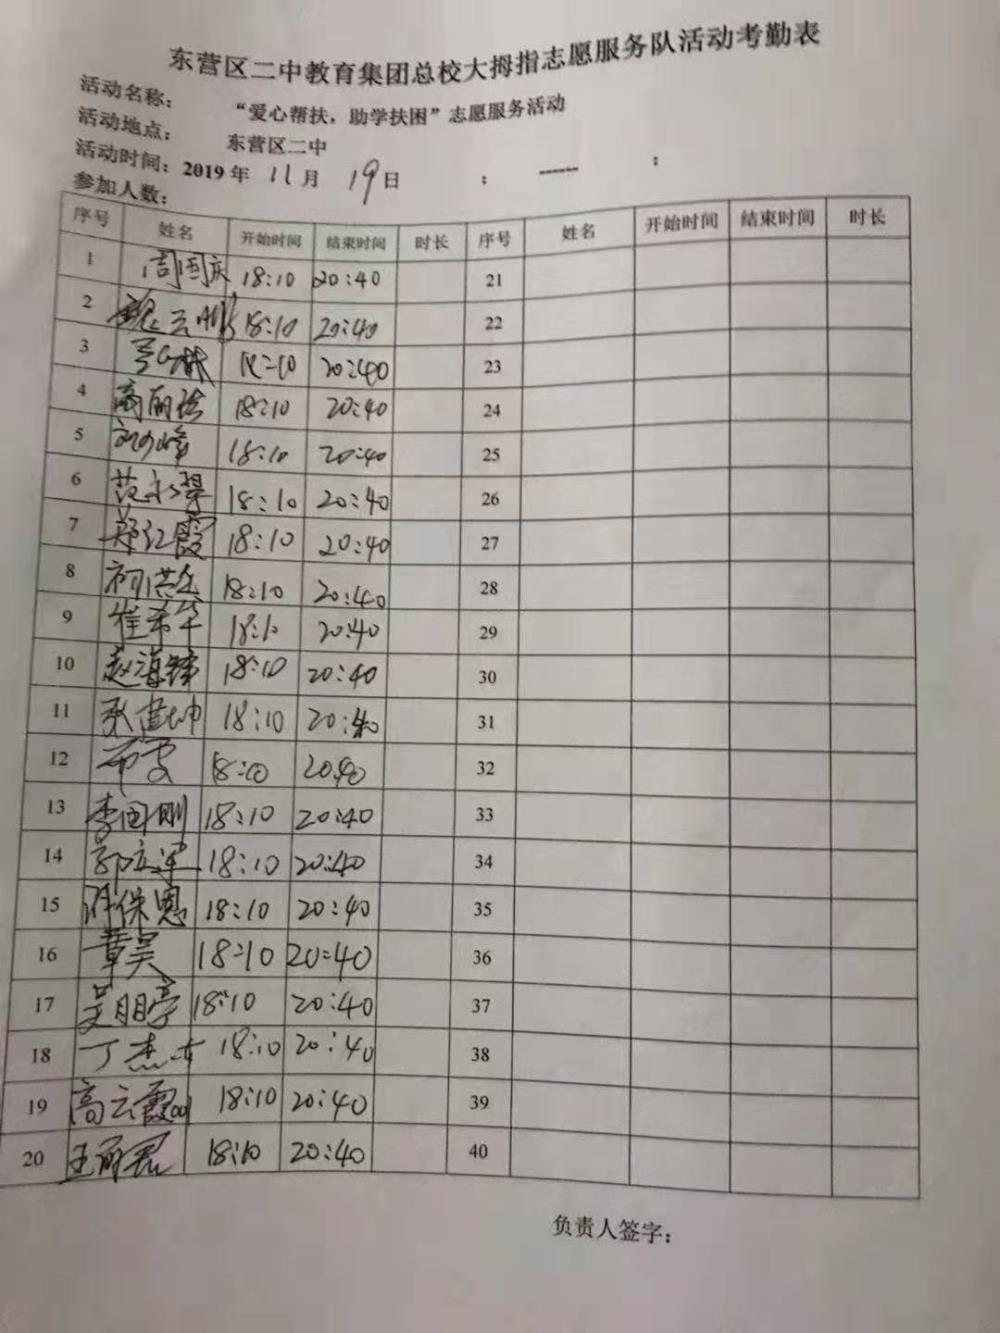 东营区二中教育集团总校大拇指志愿服务队活动考勤表
活动名称： “爱心帮扶，助学扶困”志愿服务活动
活动地点： 东营区二中
活动时间：2019 年 11 月 19 日 ： ------ ：
参加人数：
序号 姓名 开始时间 结束时间 时长 序号 姓名 开始时间 结束时间 时长
1 周国庆 18:10 20:40 21
2 18:10 20:40 22
3 18:10 20:40 23
4 18:10 20:40 24
5 18:10 20:40 25
6 范永翠 18:10 20:40 26
7 郑红霞 18:10 20:40 27
8 18:10 20:40 28
9 崔希华 18:10 20:40 29
10 赵海锋 18:10 20:40 30
11 张建坤 18:10 20:40 31
12 18:10 20:40 32
13 李国刚 18:10 20:40 33
14 郭立军 18:10 20:40 34
15 许保恩 18:10 20:40 35
16 章昊 18:10 20:40 36
17 吴朋亭 18:10 20:40 37
18 18:10 20:40 38
19 高云霞 18:10 20:40 39
20 18:10 20:40 40
负责人签字：